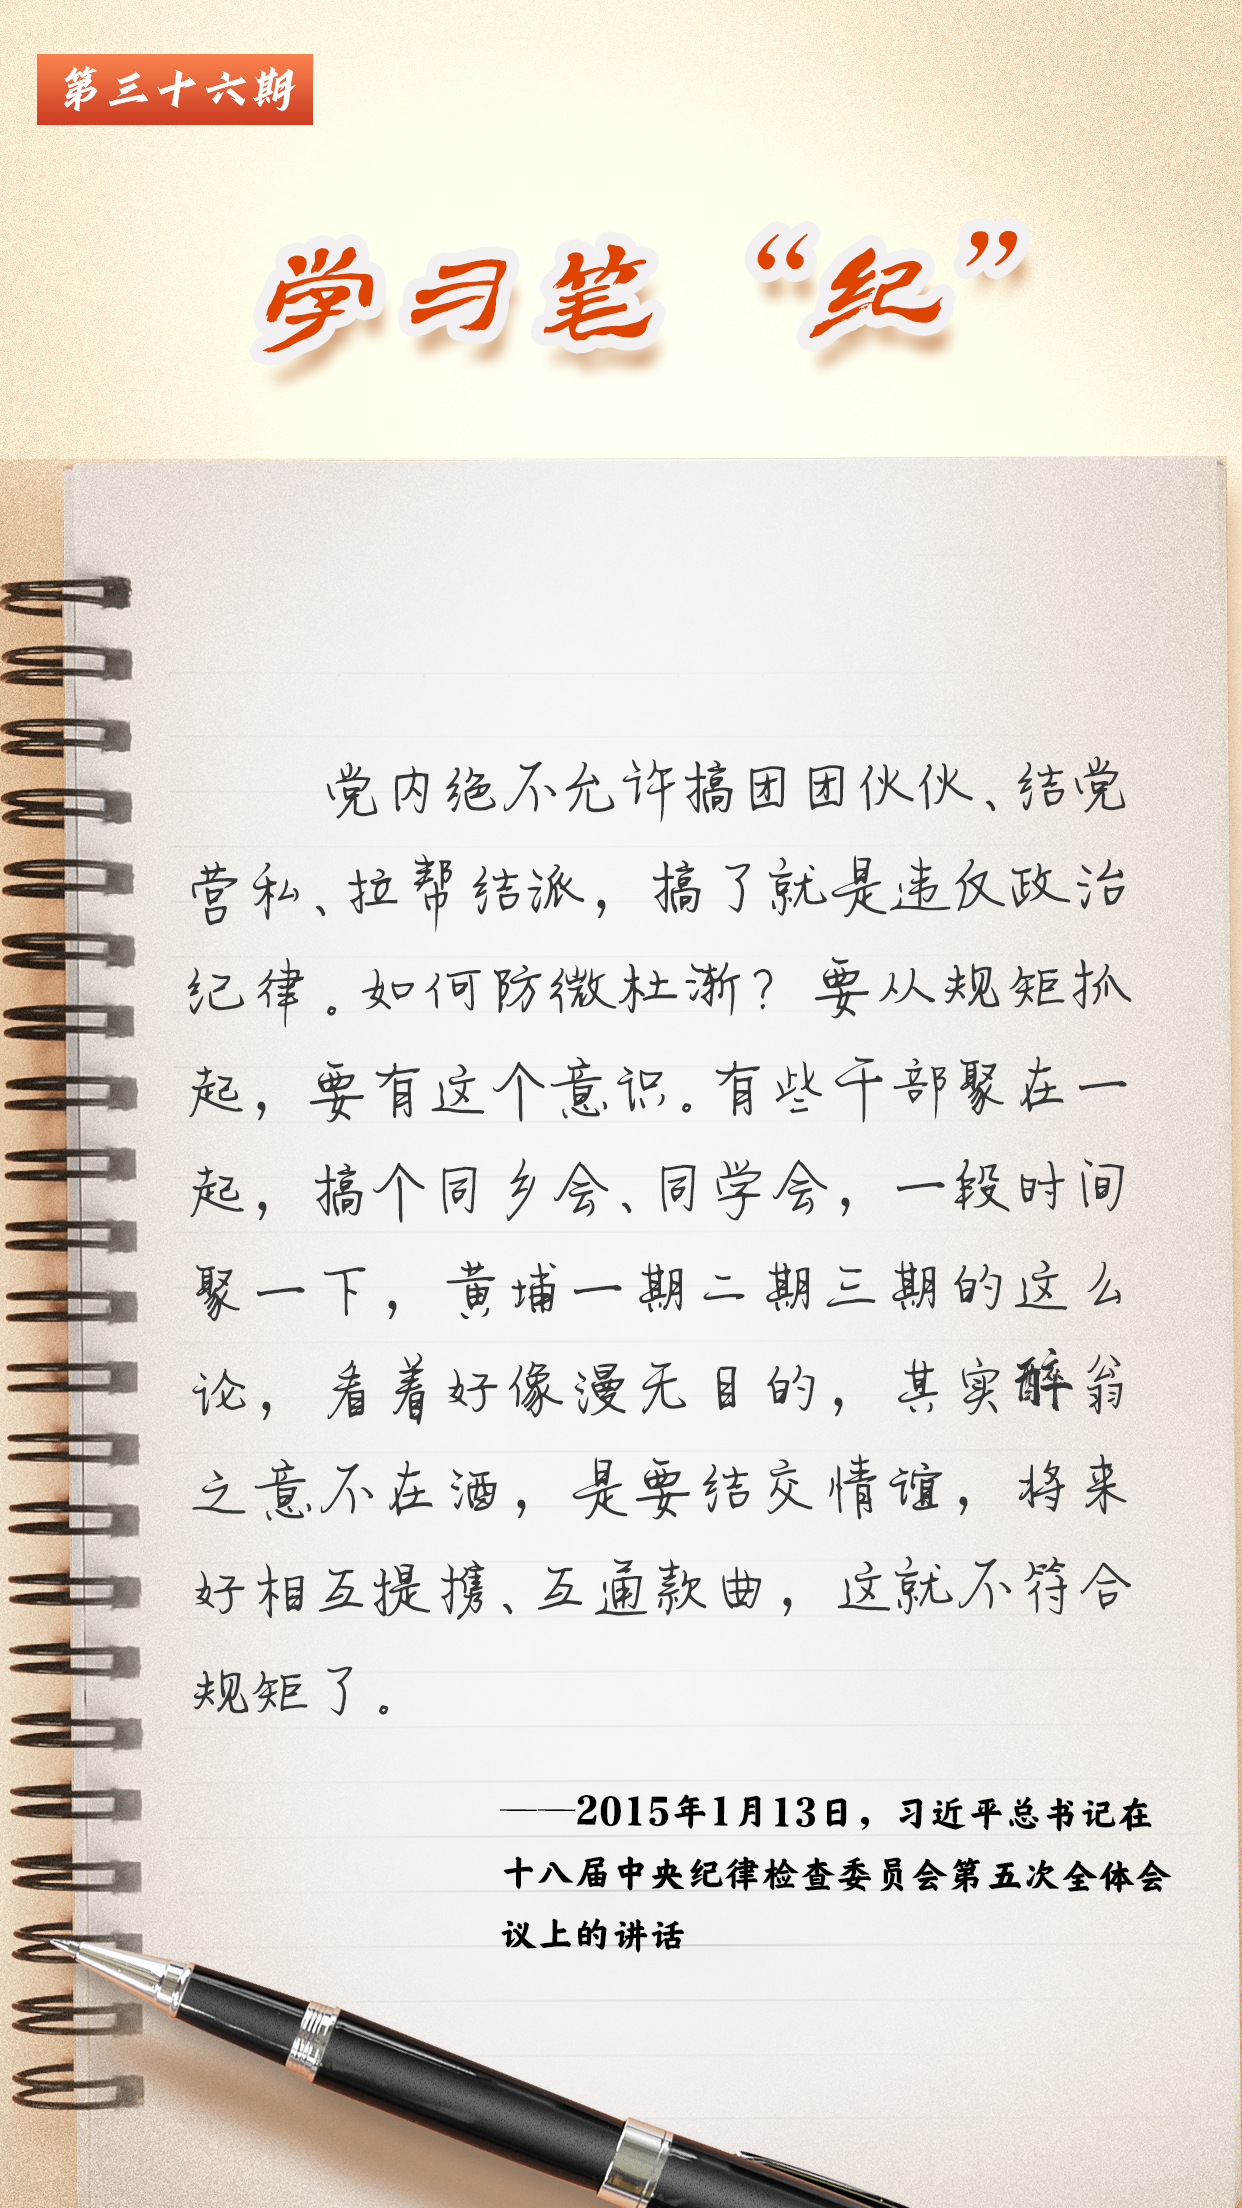 第三十六期
学习笔“纪”
党内绝不允许搞团团伙伙、结党
营私、拉帮结派，搞了就是违反政治
纪律。如何防微杜渐？要从规矩抓
起，要有这个意识。有些干部聚在一
起，搞个同乡会、同学会，一段时间
聚一下，黄埔一期二期三期的这么
论，看着好像漫无目的，其实醉翁
之意不在酒，是要结交情谊，将来
好相互提携、互通款曲，这就不符合
规矩了。
——2015年1月13日，习近平总书记在
十八届中央纪律检查委员会第五次全体会
议上的讲话